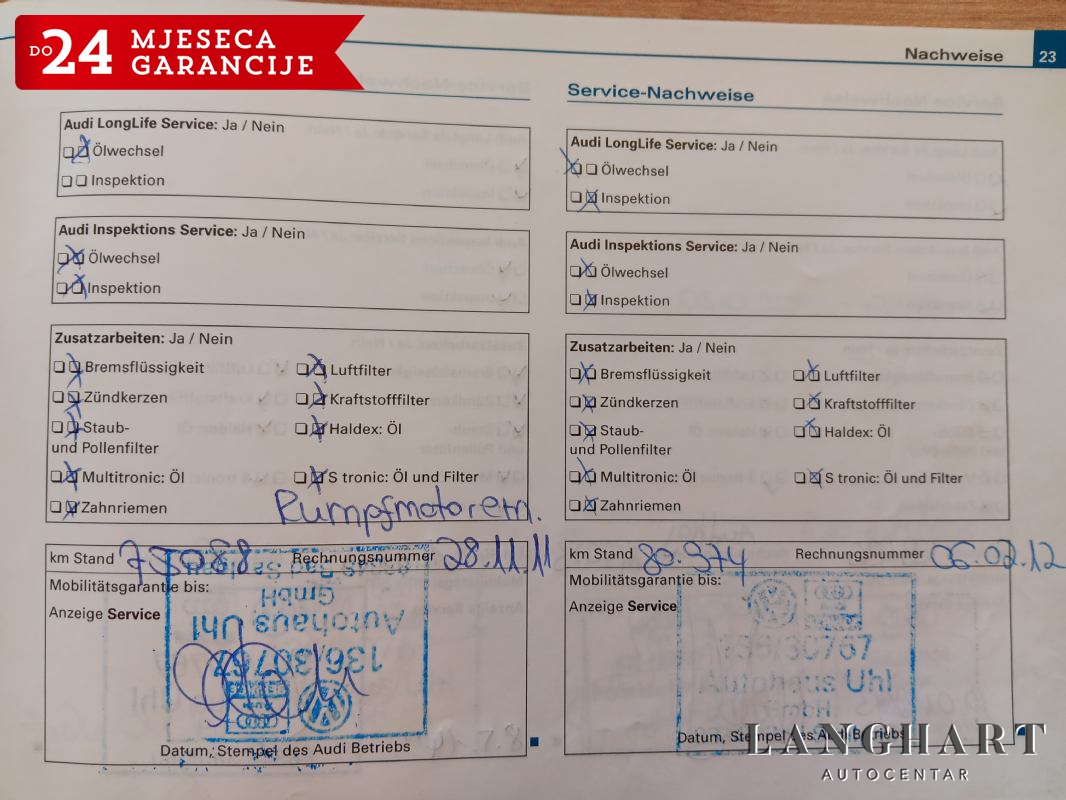 DO 24 MJESECA
GARANCIJE
Nachweise 23
Audi LongLife Service: Ja / Nein
Ölwechsel
Inspektion
Audi Inspektions Service: Ja / Nein
Ölwechsel
Inspektion
Zusatzarbeiten: Ja / Nein
Bremsflüssigkeit Luftfilter
Zündkerzen Kraftstofffilter
Staub- Haldex: Öl
und Pollenfilter
Multitronic: Öl S tronic: Öl und Filter
Zahnriemen
Rumpfmotorern.
km Stand Rechnungsnummer 28.11.11
Mobilitätsgarantie bis:
Anzeige Service
136/30767
Autohaus Uhl
GmbH
Datum, Stempel des Audi Betriebs
Service-Nachweise
Audi LongLife Service: Ja / Nein
Ölwechsel
Inspektion
Audi Inspektions Service: Ja / Nein
Ölwechsel
Inspektion
Zusatzarbeiten: Ja / Nein
Bremsflüssigkeit Luftfilter
Zündkerzen Kraftstofffilter
Staub- Haldex: Öl
und Pollenfilter
Multitronic: Öl S tronic: Öl und Filter
Zahnriemen
km Stand 80.974 Rechnungsnummer 06.02.12
Mobilitätsgarantie bis:
Anzeige Service
136/30767
Autohaus Uhl
GmbH
Datum, Stempel des Audi Betriebs
LANGHART
AUTOCENTAR